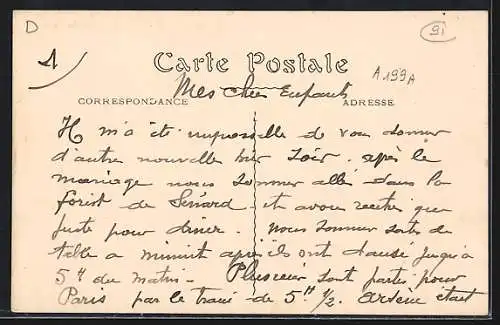 D
91
1
Carte Postale
A199A
Mes chers Enfants
CORRESPONDANCE
ADRESSE
Il m'a été impossible de vous donner
d'autre nouvelle hier soir. après le
mariage nous sommes allés dans la
forêt de Sénard et avons rentrer que
juste pour diner. Nous sommes sorts de
table a minuit après ils ont dansé jusqu'à
5H du matin - Plusieur sont partis pour
Paris par le train de 5H 1/2. Arsène etait